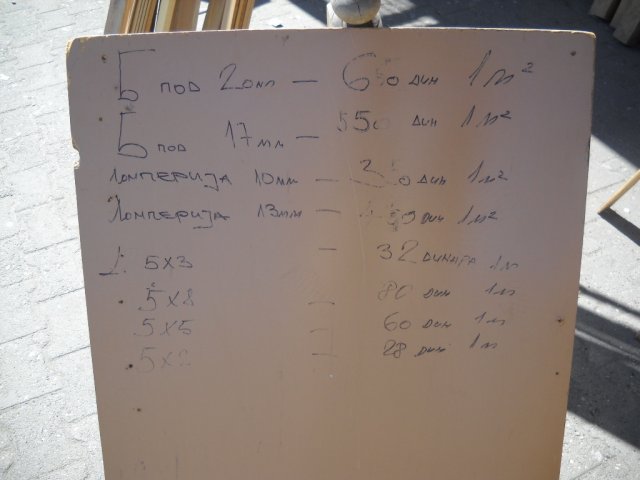 Б под 20мм — 650 дин 1м²
Б под 17мм — 550 дин 1м²
Ламперија 10мм — дин 1м²
Ламперија 13мм — дин 1м²
5x3 — 32 динара 1м
5x8 — 80 дин 1м
5x5 — 60 дин 1м
5x2 — 28 дин 1м